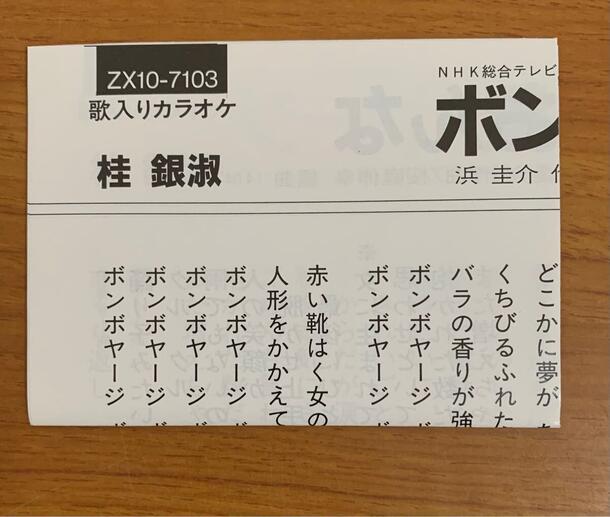 ZX10-7103
歌入りカラオケ
桂 銀淑
NHK総合テレビ
ボン
浜 圭介
どこかに夢が
くちびるふれた
バラの香りが強
ボンボヤージ
ボンボヤージ
赤い靴はく女の
人形をかかえて
ボンボヤージ
ボンボヤージ
ボンボヤージ
ボンボヤージ